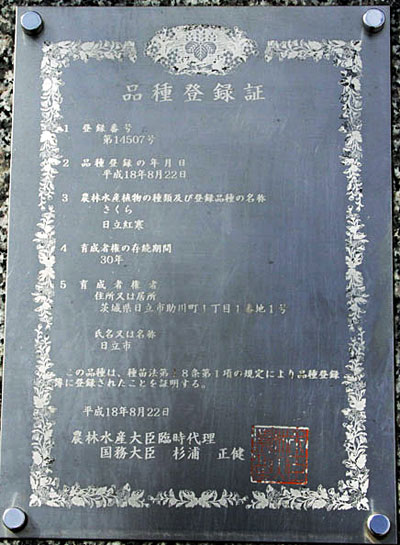 品種登録証
1 登録番号
第14507号
2 品種登録の年月日
平成18年8月22日
3 農林水産植物の種類及び登録品種の名称
さくら
日立紅寒
4 育成者権の存続期間
30年
5 育成者権者
住所又は居所
茨城県日立市助川町1丁目1番地1号
氏名又は名称
日立市
この品種は、種苗法第18条第1項の規定により品種登録
簿に登録されたことを証明する。
平成18年8月22日
農林水産大臣臨時代理
国務大臣 杉浦 正健